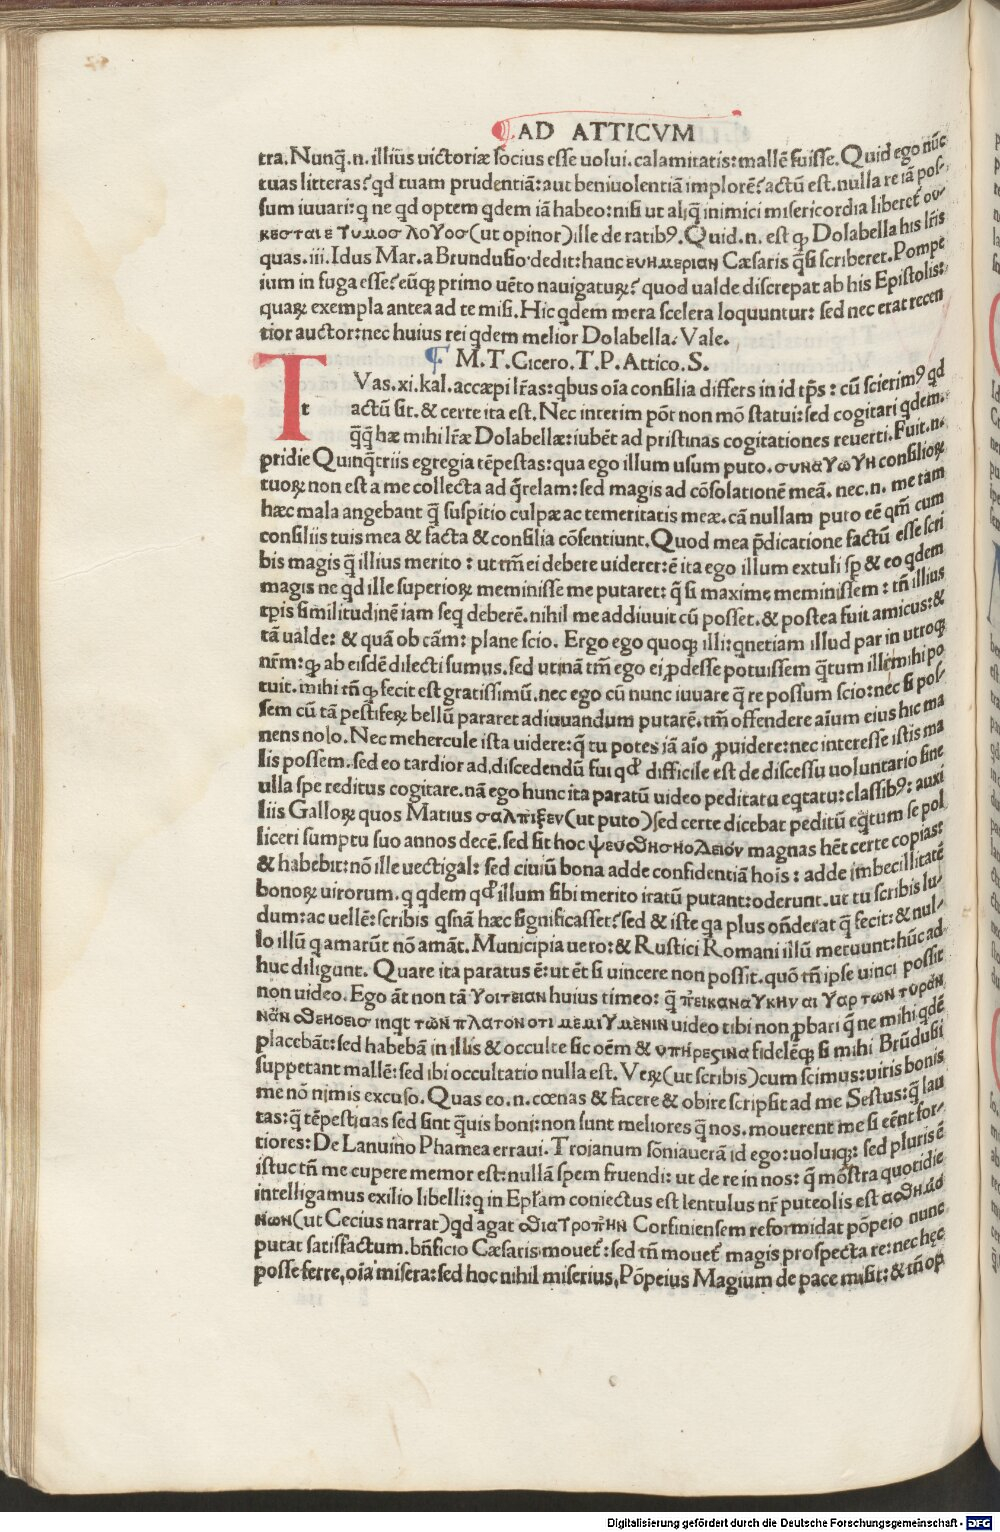 AD ATTICVM
tra. Nunq̄. n. illius uictoriæ socius esse uolui. calamitatis: mallē fuisse. Quid ego nūc
tuas litteras? qd tuam prudentiā: aut beniuolentiā implorē? actū est. nulla re iā pos-
sum iuuari: q ne qd optem qdem iā habeo: nisi ut aliq̄ inimici misericordia liberet̃ ου-
κεσταιε τυμοσ λουοσ (ut opinor) ille de ratibꝰ. Quid. n. est ꝙ Dolabella his lr̄is
quas. iii. Idus Mar. a Brundusio dedit: hanc ευημεριαν Cæsaris q̄si scriberet. Pompe
ium in fuga esse? eūqꝫ primo uēto nauigatuꝝ? quod ualde discrepat ab his Epistolis:
quaꝝ exempla antea ad te misi. Hic qdem mera scelera loquuntur: sed nec erat recen
tior auctor: nec huius rei qdem melior Dolabella. Vale.
¶ M. T. Cicero. T. P. Attico. S.
T Vas. xi. kal. accæpi lr̄as: qbus oīa consilia differs in id tp̄s: cū scierimꝰ qd
t actū sit. & certe ita est. Nec interim pōt non mō statui: sed cogitari qdem.
q̄q̄ hæ mihi lr̄æ Dolabellæ: iubēt ad pristinas cogitationes reuerti. Fuit. n.
pridie Quinq̄triis egregia tēpestas: qua ego illum usum puto. συναγωγη consilioꝝ
tuoꝝ non est a me collecta ad q̄relam: sed magis ad cōsolationē meā. nec. n. me tam
hæc mala angebant q̄ suspitio culpæ ac temeritatis meæ. cā nullam puto eē qm̄ cum
consiliis tuis mea & facta & consilia cōsentiunt. Quod mea p̄dicatione factū esse scri
bis magis q̄ illius merito: ut tm̄ ei debere uiderer: ē ita ego illum extuli sp̄ & eo qdem
magis ne qd ille superioꝝ meminisse me putaret: q̄ si maxime meminissem: tn̄ illius
tp̄is similitudinē iam seq deberē. nihil me addiuuit cū posset. & postea fuit amicus: &
tā ualde: & quā ob cām: plane scio. Ergo ego quoqꝫ illi: qnetiam illud par in utroqꝫ
nr̄m: ꝙ ab eisdē dilecti sumus. sed utinā tm̄ ego ei ꝓdesse potuissem q̄tum ille mihi po
tuit. mihi tn̄ ꝙ fecit est gratissimū. nec ego cū nunc iuuare q̄ re possum scio: nec si pos-
sem cū tā pestifeꝝ bellū pararet adiuuandum putarē. tm̄ offendere aīum eius hic ma
nens nolo. Nec mehercule ista uidere: q̄ tu potes iā aīo ꝓuidere: nec interesse istis ma
lis possem. sed eo tardior ad. discedendū fui qd difficile est de discessu uoluntario sine
ulla spe reditus cogitare. nā ego hunc ita paratū uideo peditatu eqtatu: classibꝰ: auxi
liis Galloꝝ quos Matius σαλπιξεν (ut puto) sed certe dicebat peditū eqtum se pol
liceri sumptu suo annos decē. sed sit hoc ψευσθησησδειον magnas hēt certe copias:
& habebit: nō ille uectigal: sed ciuiū bona adde confidentiā hois: adde imbecillitatē
bonoꝝ uirorum. q qdem qd illum sibi merito iratū putant: oderunt. ut tu scribis lu-
dum: ac uellē: scribis qsnā hæc significasset? sed & iste qa plus on̄derat q̄ fecit: & nul-
lo illū q amarūt nō amāt. Municipia uero: & Rustici Romani illū metuunt: hūc ad
huc diligunt. Quare ita paratus ē: ut ēt si uincere non possit. quō tn̄ ipse uinci possit
non uideo. Ego āt non tā γοιτειαν huius timeo: q̄ πεικαναγκην αι γαρ των τυραν
ναν σθενοεισ inqt των πλατον οτι μεμιγμενιν uideo tibi non ꝓbari q̄ ne mihi qdē
placebāt: sed habebā in illis & occulte sic oēm & υπηρεσινα fidelēqꝫ si mihi Brūdusi
suppetant mallē: sed ibi occultatio nulla est. Veꝝ (ut scribis) cum scimus: uiris bonis
me nō nimis excuso. Quas eo. n. cœnas & facere & obire scripsit ad me Sestus: q̄ lau
tas: q̄ tēpestiuas sed sint q̄uis boni: non sunt meliores q̄ nos. mouerent me si eēnt for-
tiores: De Lanuino Phamea erraui. Troianum sōniauerā id ego: uoluiqꝫ: sed pluris ē
istuc tn̄ me cupere memor est: nullā spem fruendi: ut de re in nos: q̄ mōstra quotidie
intelligamus exilio libelli: q in Epl̄am coniectus est lentulus nr̄ puteolis est αδημο
νων (ut Cecius narrat) qd agat σθιατροπην Corfiniensem reformidat pōpeio nunc
putat satisfactum. bn̄ficio Cæsaris mouet̃: sed tn̄ mouet̃ magis prospecta re: nec hęc
posse ferre, oīa misera: sed hoc nihil miserius, Pōpeius Magium de pace misit: & tn̄ op
Digitalisierung gefördert durch die Deutsche Forschungsgemeinschaft - DFG